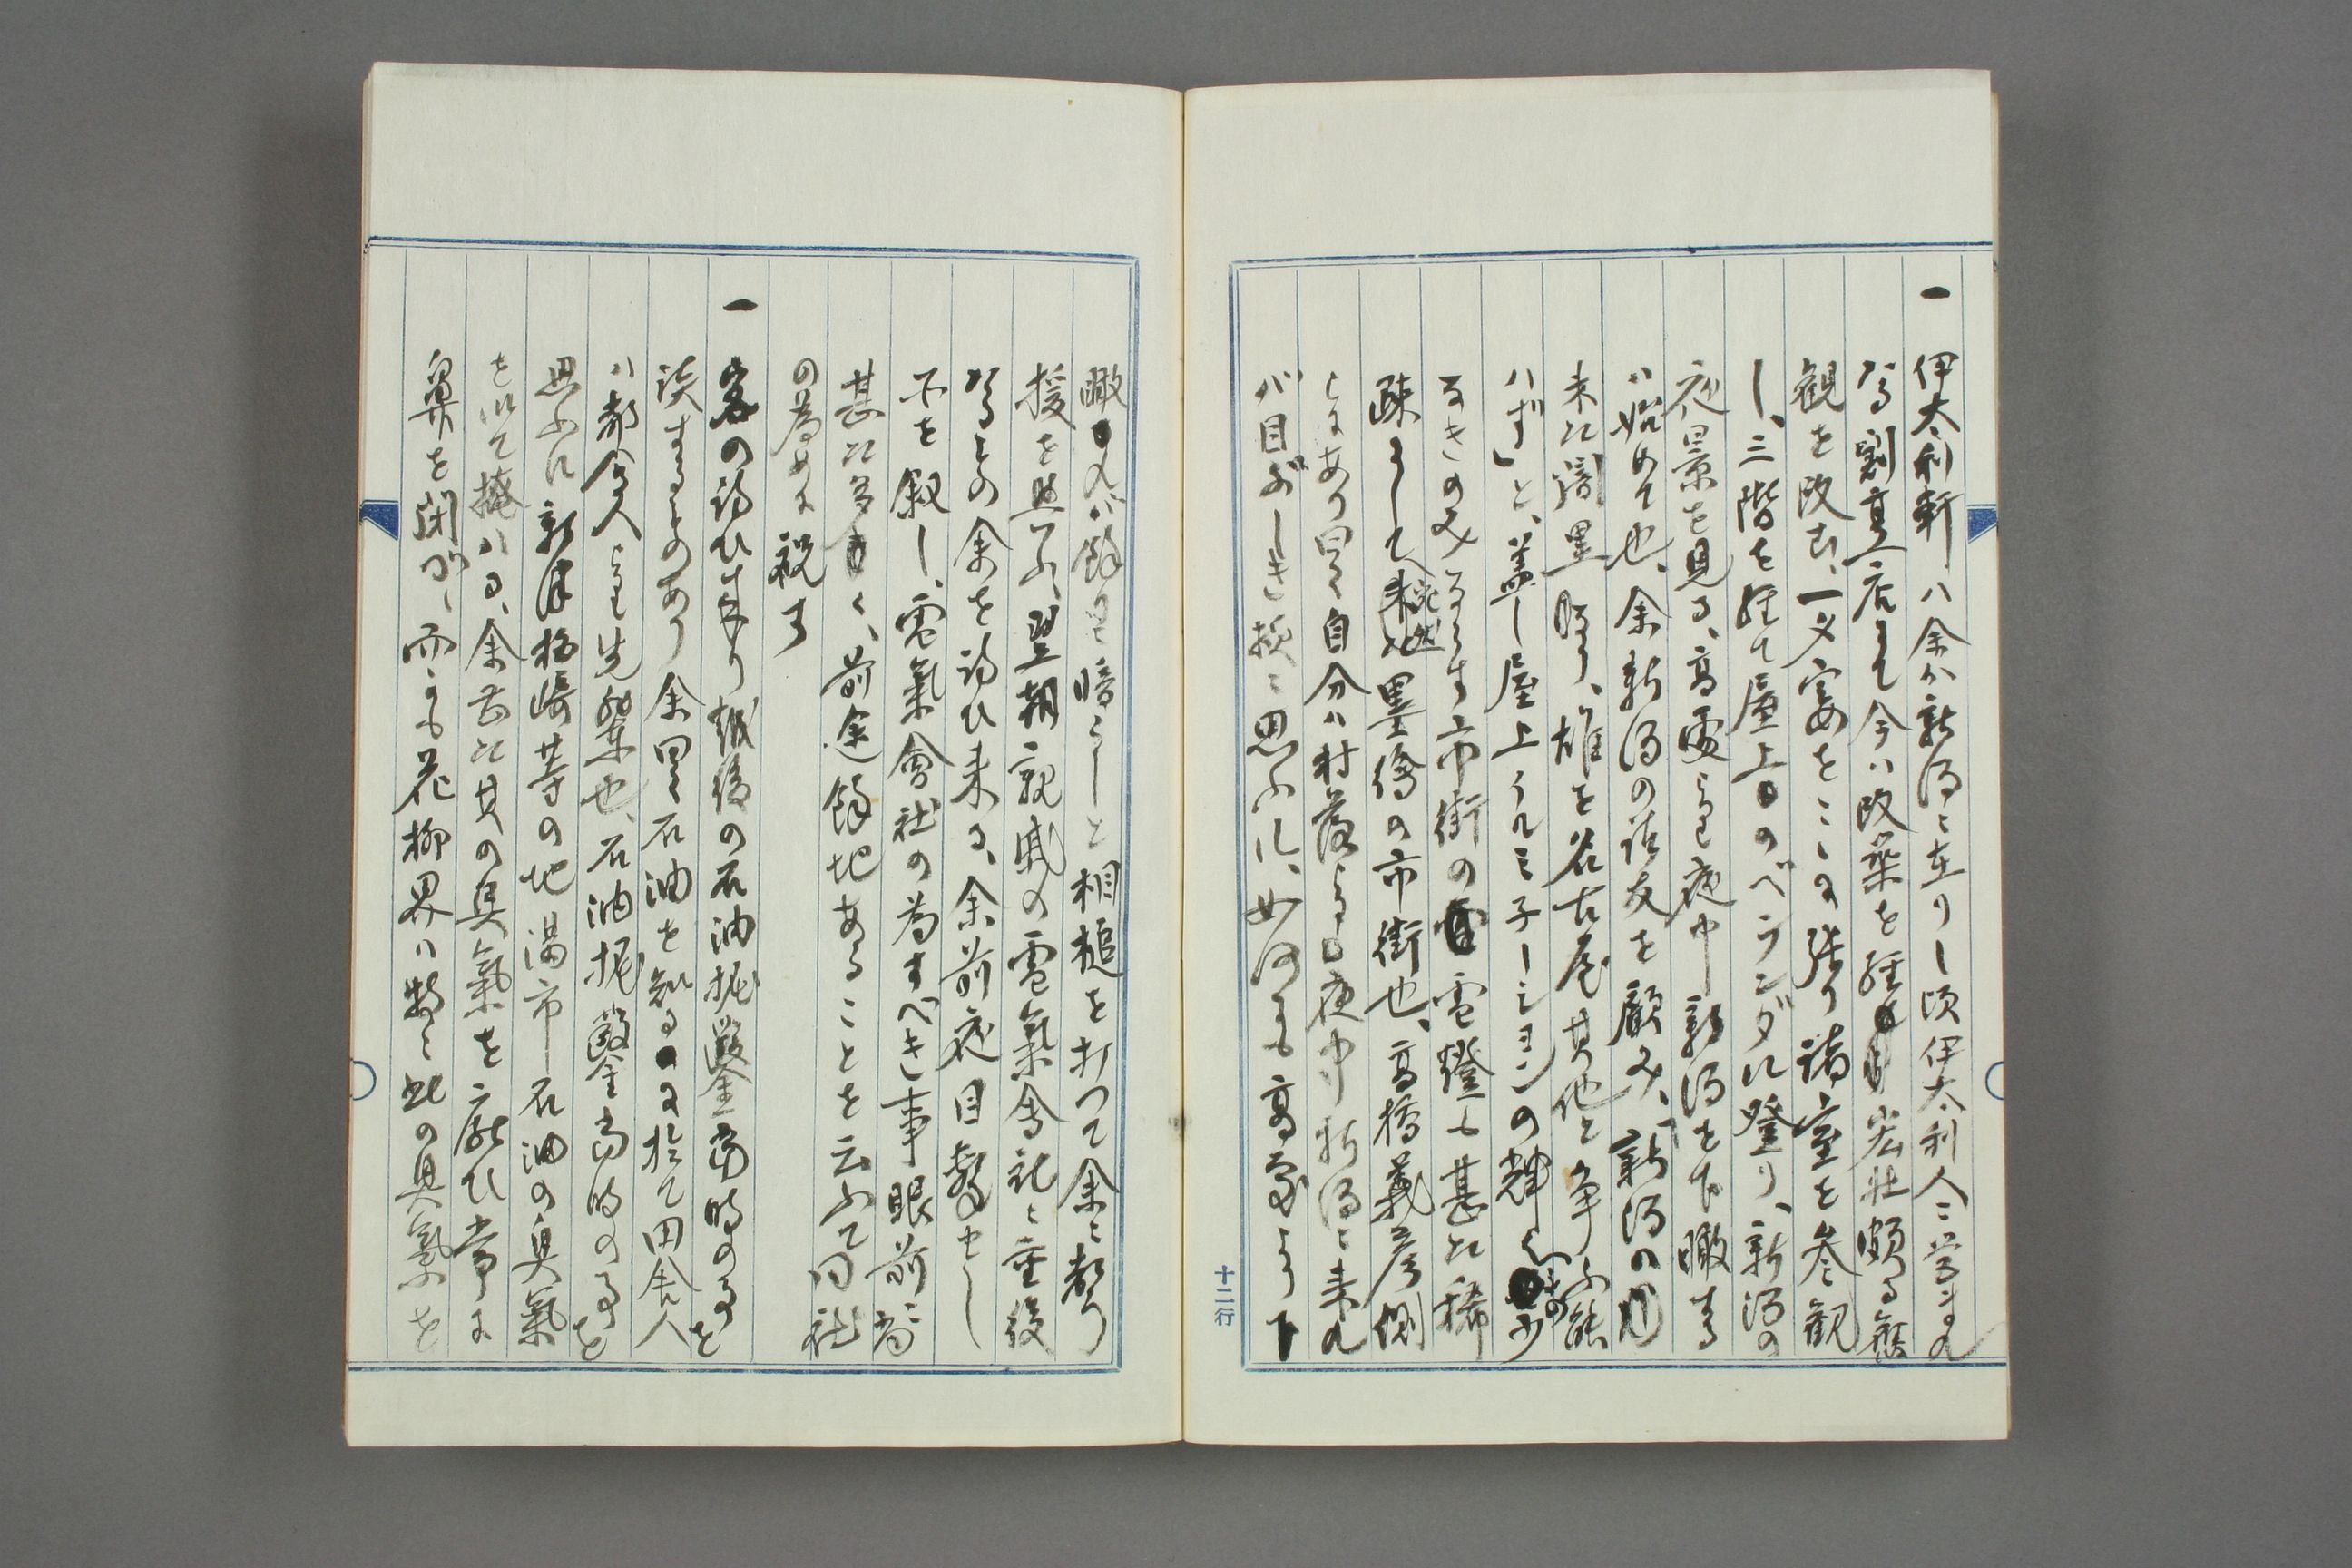 一 伊太利軒ハ余が新潟ニ在りし頃伊太利人ニ営する
なる割烹店にて今ハ改築を経 宏壮頗る旧
観を改む、一夕宴をここに張り諸室を参観
し、三階を経て屋上のベランダに登り、新潟の
夜景を見る、高処より夜中新潟を下瞰する
ハ始めて也、余新潟の諸友を顧み、「新潟の
未に闇黒 雄を名古屋其他と争ふ能
ハず」と、蓋し屋上イルミ子ーションの輝くもの少
なきのみならす市街の電燈も甚た稀
疎にして宛然墨絵の市街也、高橋義彦側
にあり曰く自分ハ村落より夜中新潟に来れ
バ目ざしき様に思ふに、如何にも高処より下
瞰 バ餘り暗らしと相槌を打つて余に
援を与ふ、翌朝親戚の電気会社ニ重役
なるもの余を訪ひ来る、余前夜目撃せし
所を叙し、電氣會社の為すべき事眼前ニ尚
甚た多く、前途餘地あることを云ふて同社
の為めに祝す
一 客の訪ひ来り越後の石油掘鑿当時の事を
談するものあり余曰く石油を知るに於て田舎人
ハ都会人より先輩也、石油掘鑿当時の事を
思ふに新津柏崎等の地満市石油の臭氣
を以て掩ハる、余甚た其の臭氣を厭ひ常に
鼻を閉づ、而かも花柳界ハ特ニ此の臭氣を
十二行